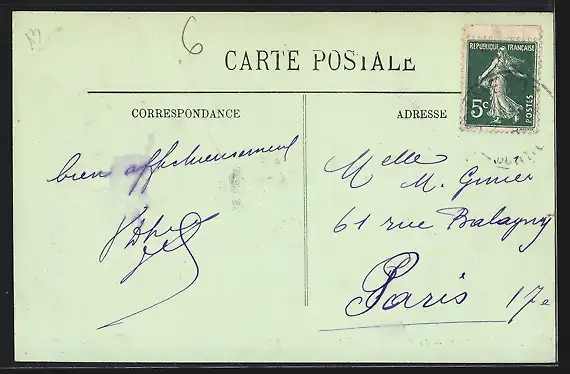 6
CARTE POSTALE
RÉPUBLIQUE FRANÇAISE
5c
POSTES
CORRESPONDANCE
ADRESSE
bien affectueusement
Melle
M.
61 rue Balagny
Paris 17e